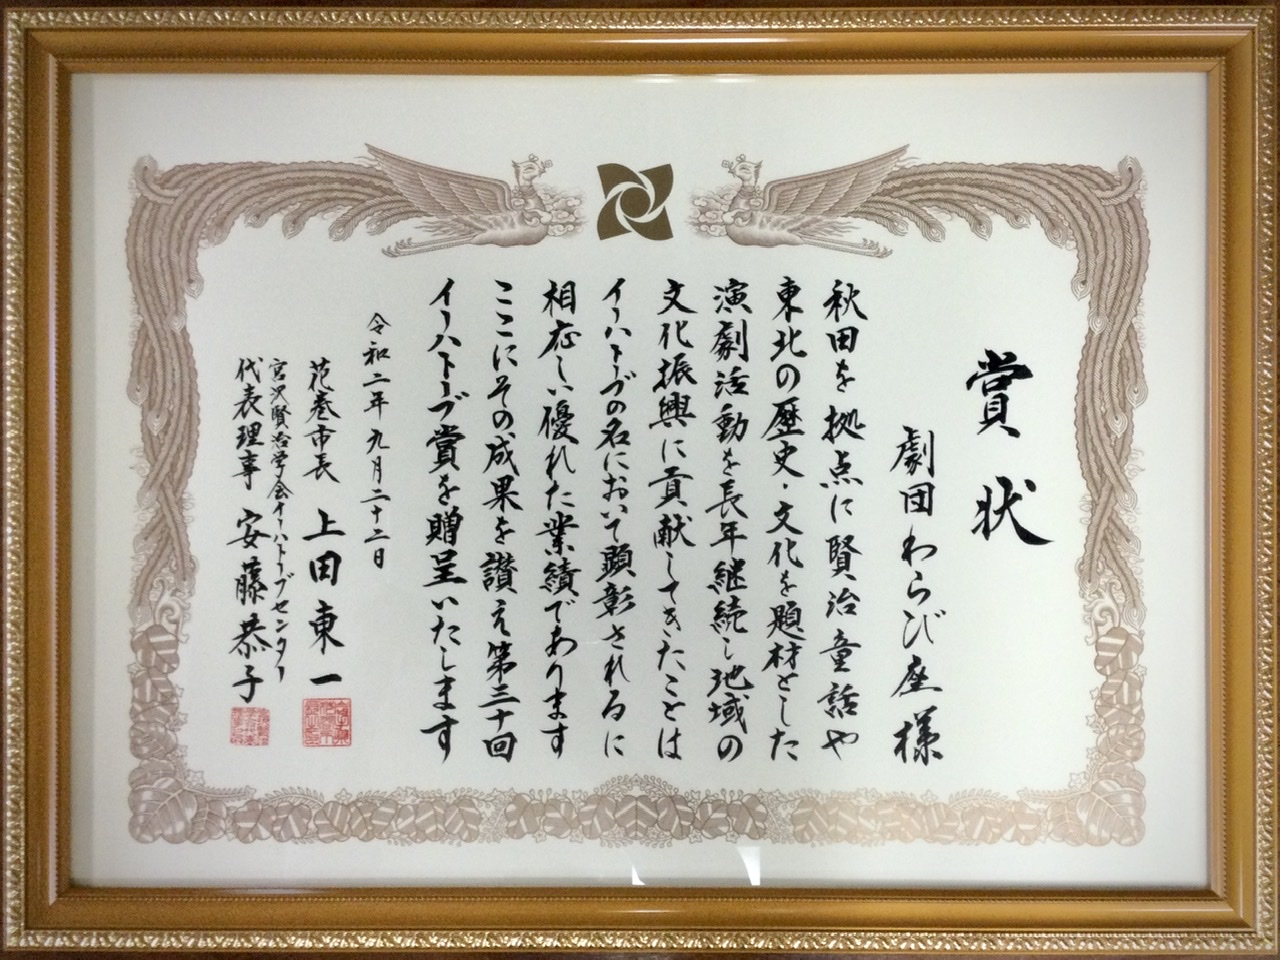 賞状
劇団わらび座様
秋田を拠点に賢治童話や
東北の歴史・文化を題材とした
演劇活動を長年継続し地域の
文化振興に貢献してきたことは
イーハトーブの名において顕彰されるに
相応しい優れた業績であります
ここにその成果を讃え第三十回
イーハトーブ賞を贈呈いたします
令和二年九月二十二日
花巻市長 上田東一
宮沢賢治学会イーハトーブセンター
代表理事 安藤恭子